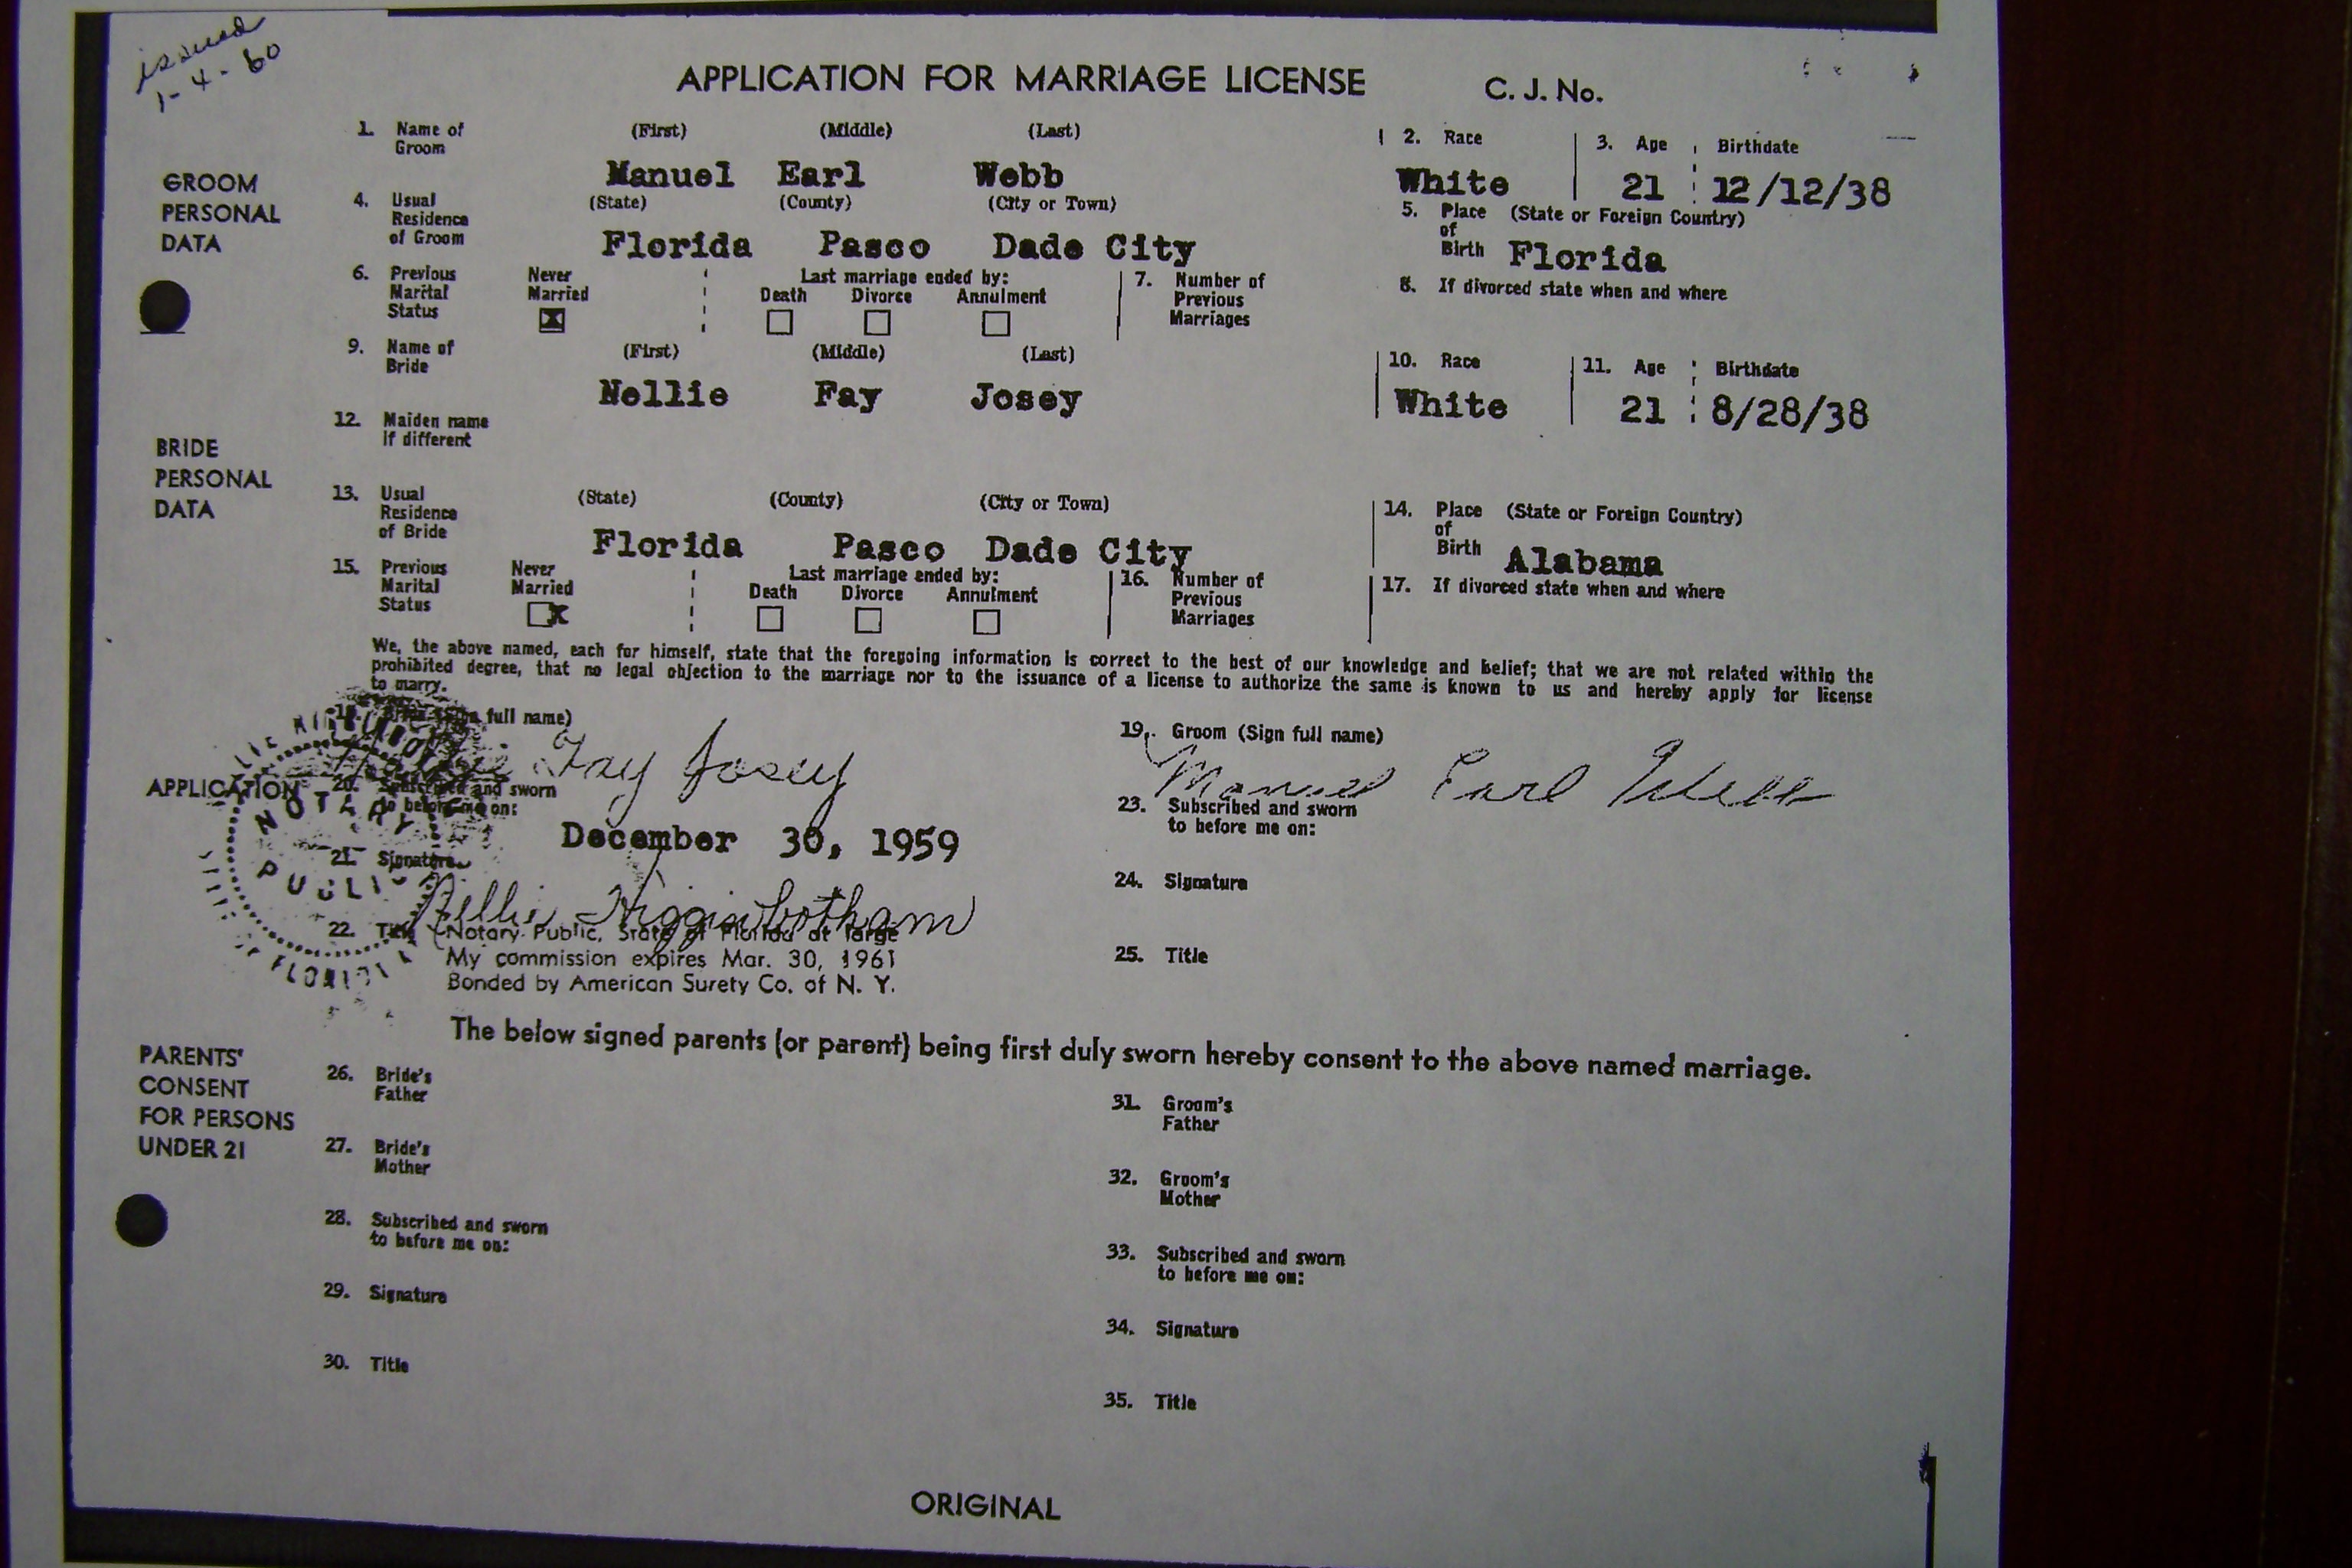 issued
1-4-60
APPLICATION FOR MARRIAGE LICENSE C. J. No.
1. Name of Groom (First) (Middle) (Last) 2. Race 3. Age Birthdate
GROOM PERSONAL DATA
Manuel Earl Webb White 21 12/12/38
4. Usual Residence of Groom (State) (County) (City or Town) 5. Place of Birth (State or Foreign Country)
Florida Pasco Dade City Florida
6. Previous Marital Status Never Married Last marriage ended by: 7. Number of Previous Marriages 8. If divorced state when and where
X Death Divorce Annulment
9. Name of Bride (First) (Middle) (Last) 10. Race 11. Age Birthdate
Nellie Fay Josey White 21 8/28/38
12. Maiden name if different
BRIDE PERSONAL DATA
13. Usual Residence of Bride (State) (County) (City or Town) 14. Place of Birth (State or Foreign Country)
Florida Pasco Dade City Alabama
15. Previous Marital Status Never Married Last marriage ended by: 16. Number of Previous Marriages 17. If divorced state when and where
X Death Divorce Annulment
We, the above named, each for himself, state that the foregoing information is correct to the best of our knowledge and belief; that we are not related within the
prohibited degree, that no legal objection to the marriage nor to the issuance of a license to authorize the same is known to us and hereby apply for license
to marry.
full name) 19. Groom (Sign full name)
Fay Josey Manuel Earl Webb
APPLICATION
20. Subscribed and sworn to before me on: 23. Subscribed and sworn to before me on:
December 30, 1959
NOTARY PUBLIC
21. Signature 24. Signature
Nellie Higginbotham
22. Title Notary Public, State of Florida at large 25. Title
My commission expires Mar. 30, 1961
Bonded by American Surety Co. of N. Y.
The below signed parents (or parent) being first duly sworn hereby consent to the above named marriage.
PARENTS' CONSENT FOR PERSONS UNDER 21
26. Bride's Father 31. Groom's Father
27. Bride's Mother 32. Groom's Mother
28. Subscribed and sworn to before me on: 33. Subscribed and sworn to before me on:
29. Signature 34. Signature
30. Title 35. Title
ORIGINAL